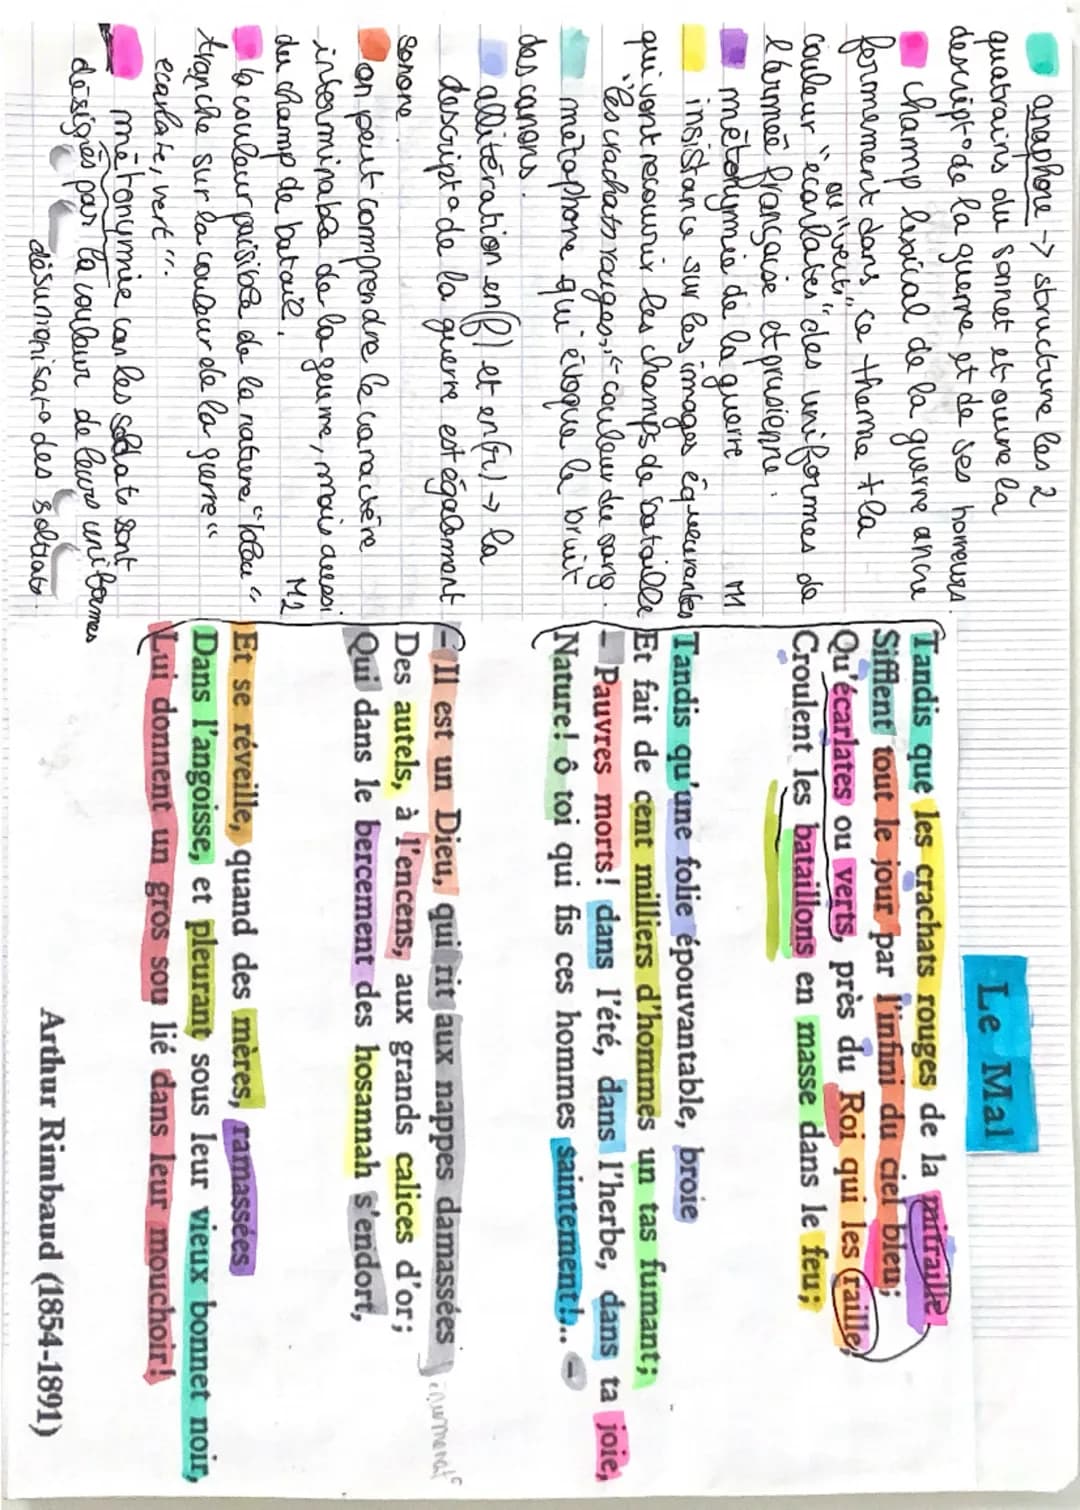 anaphore -> structure les 2
quatrains du sonnet et ouvre la
descript° de la guerre et de ses horreurs.
champ lexical de la guerre ancre
fermement dans ce thème + la
ou "verts"
couleur "écarlates" des uniformes de
l'armée française et prusienne.
métonymie de la guerre M1
insistance sur les images équeurantes
qui vont recouvrir les champs de bataille
"les crachats rouges" <- couleur du sang.
métaphore qui évoque le bruit
des canons.
allitération en (f) et en (r) -> la
descript° de la guerre est également
sonore.
on peut comprendre le caractère
interminable de la guerre, mais aussi
du champ de bataille. M2
la couleur paisible de la nature "bleu"
tranche sur la couleur de la guerre "
écarlate, vert".
métonymie car les soldats sont
désignés par la couleur de leurs uniformes
désumanisat° des soldats.
Le Mal
Tandis que les crachats rouges de la mitraille
Sifflent tout le jour par l'infini du ciel bleu;
Qu'écarlates ou verts, près du Roi qui les raille,
Croulent les bataillons en masse dans le feu;
Tandis qu'une folie épouvantable, broie
Et fait de cent milliers d'hommes un tas fumant;
- Pauvres morts! dans l'été, dans l'herbe, dans ta joie,
Nature! ô toi qui fis ces hommes saintement!... -
- Il est un Dieu, qui rit aux nappes damassées
énumérat°
Des autels, à l'encens, aux grands calices d'or;
Qui dans le bercement des hosannah s'endort,
Et se réveille, quand des mères, ramassées
Dans l'angoisse, et pleurant sous leur vieux bonnet noir,
Lui donnent un gros sou lié dans leur mouchoir!
Arthur Rimbaud (1854-1891)